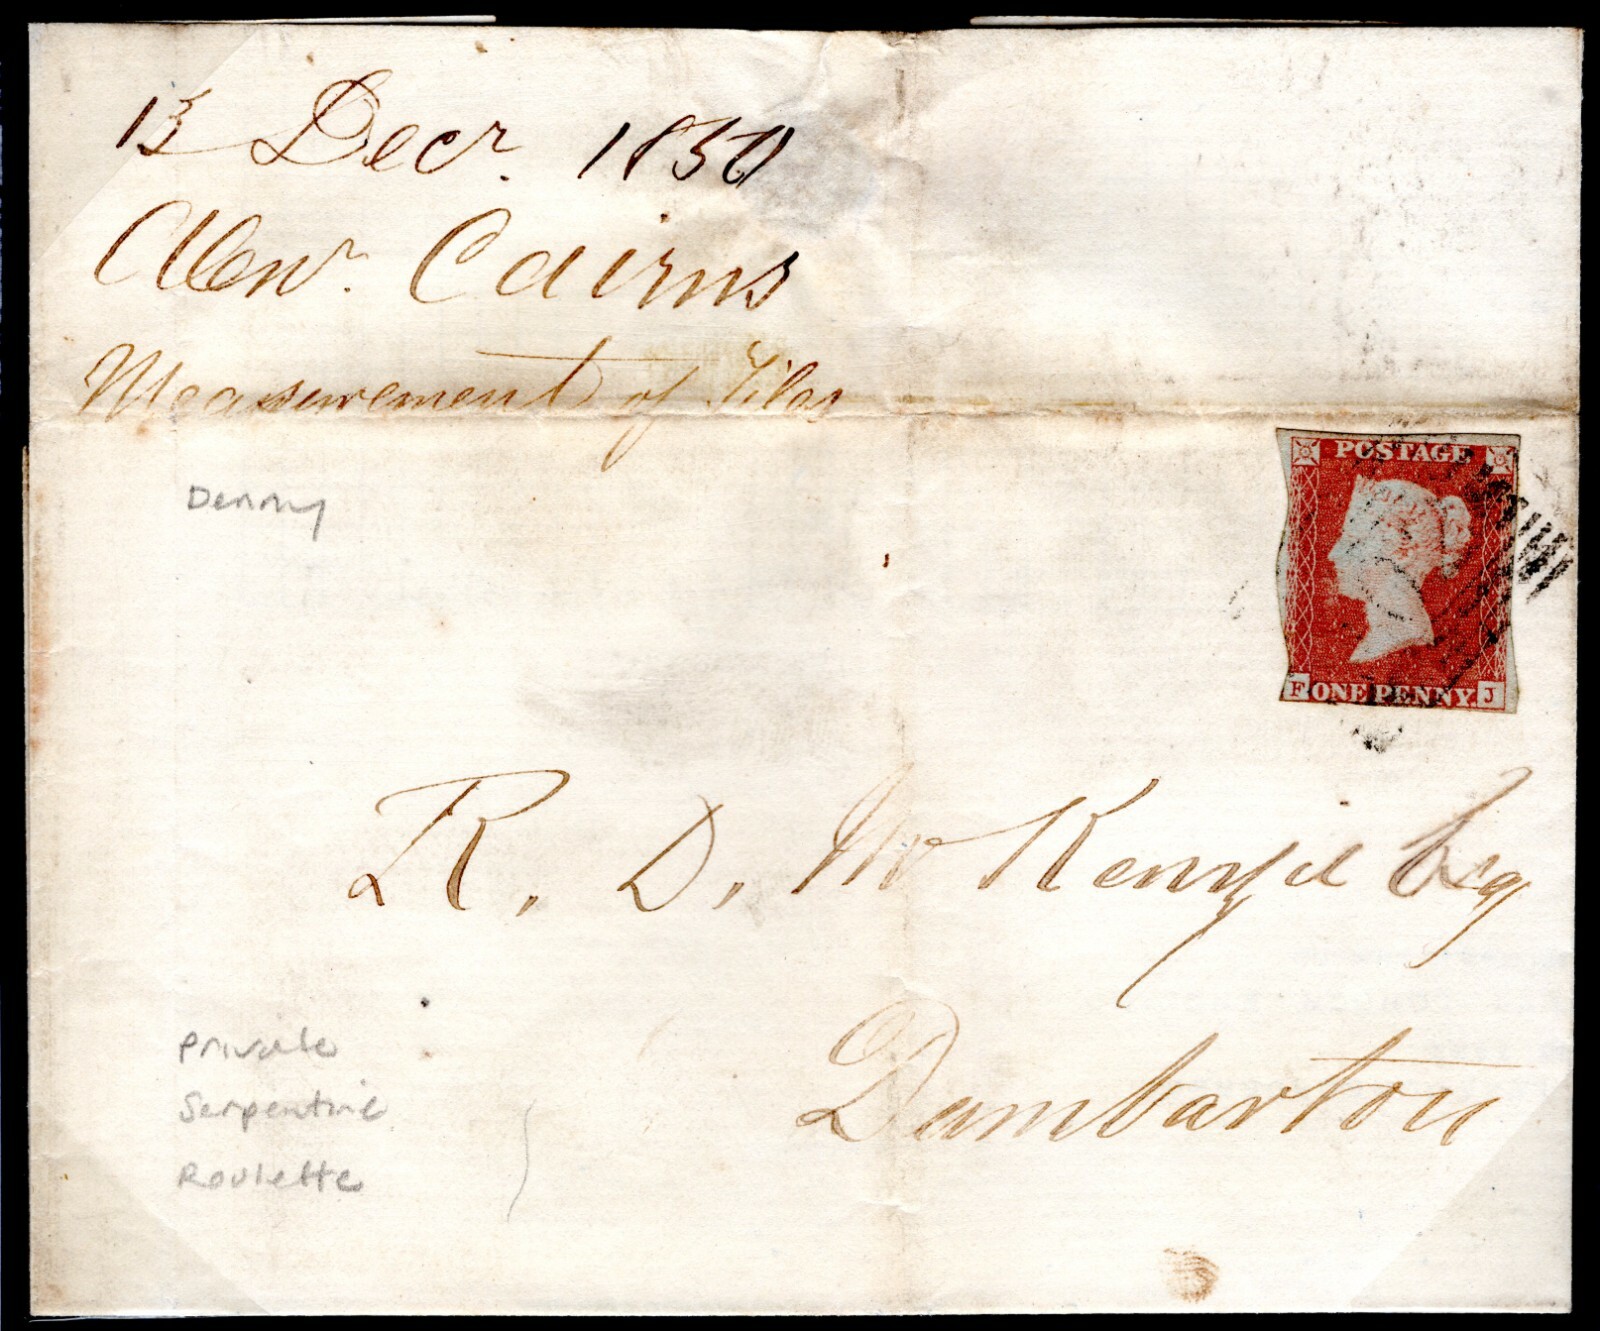 13 Decr. 1850
Alexr. Cairns
Measurement of Tiles
Denny
POSTAGE
F ONE PENNY. J
R. D. McKenzie Esq
Dumbarton
Private
Serpentine
Roulette